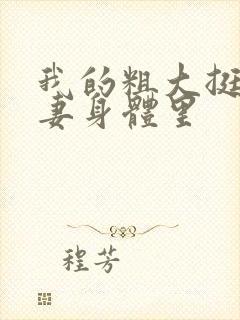 我的粗大挺
妻身體里
程芳